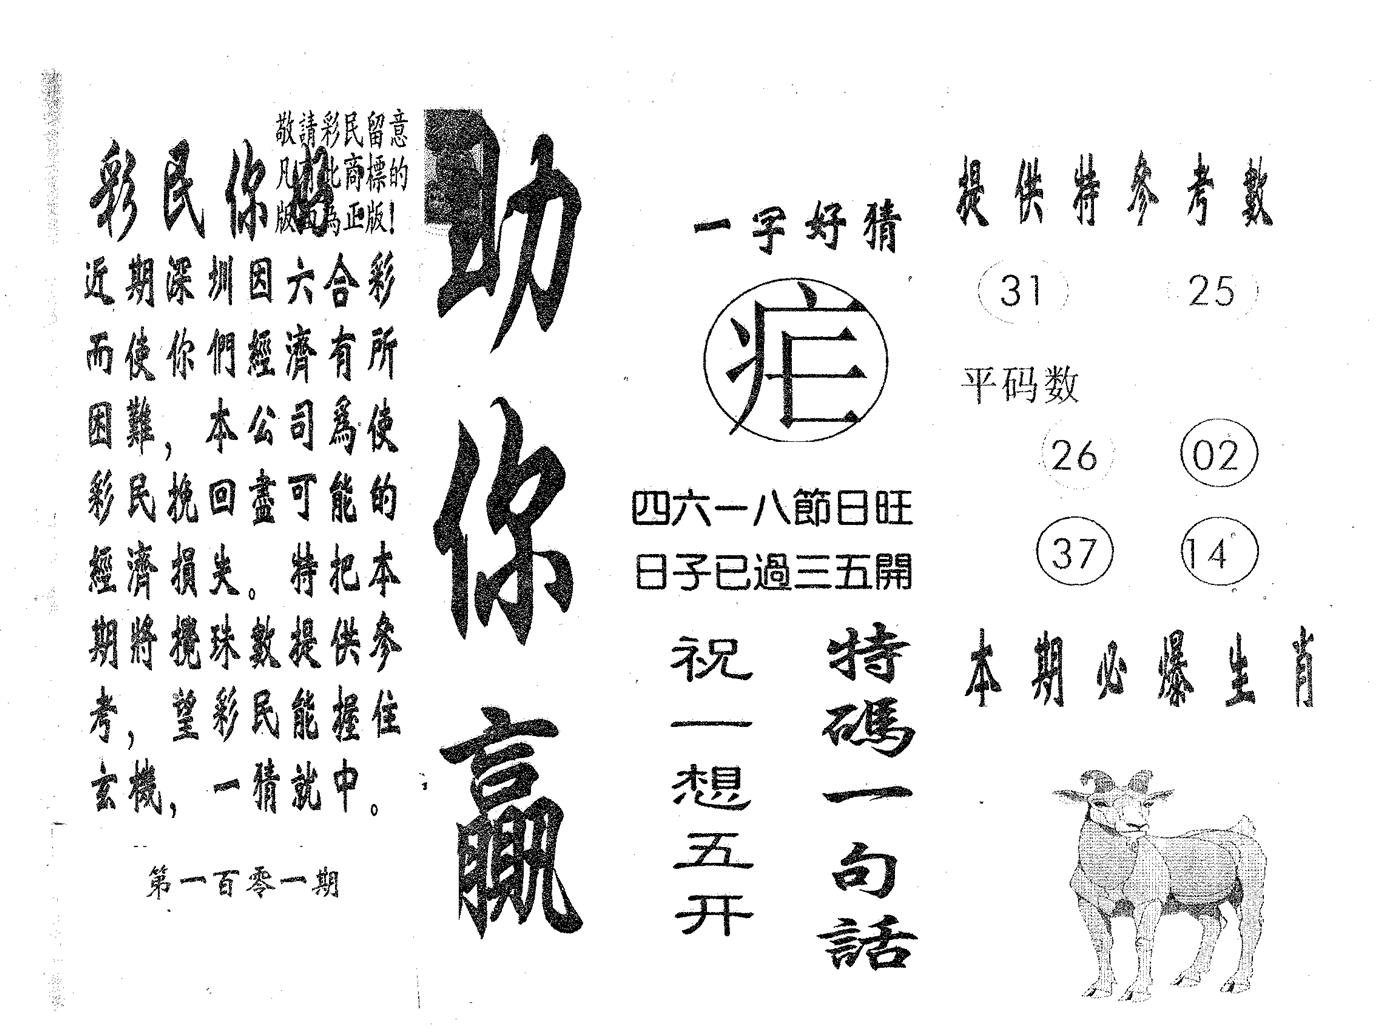 敬請彩民留意
凡有此商標的
版面為正版!
彩民你好
近期深圳因六合彩
而使你們經濟有所
困難，本公司爲使
彩民挽回盡可能的
經濟損失。特把本
期將攪珠數提供參
考，望彩民能握住
玄機，一猜就中。
第一百零一期
助你贏
一字好猜
疟
四六一八節日旺
日子已過三五開
特碼一句話
祝一想五开
提供特參考數
31 25
平码数
26 02
37 14
本期必爆生肖